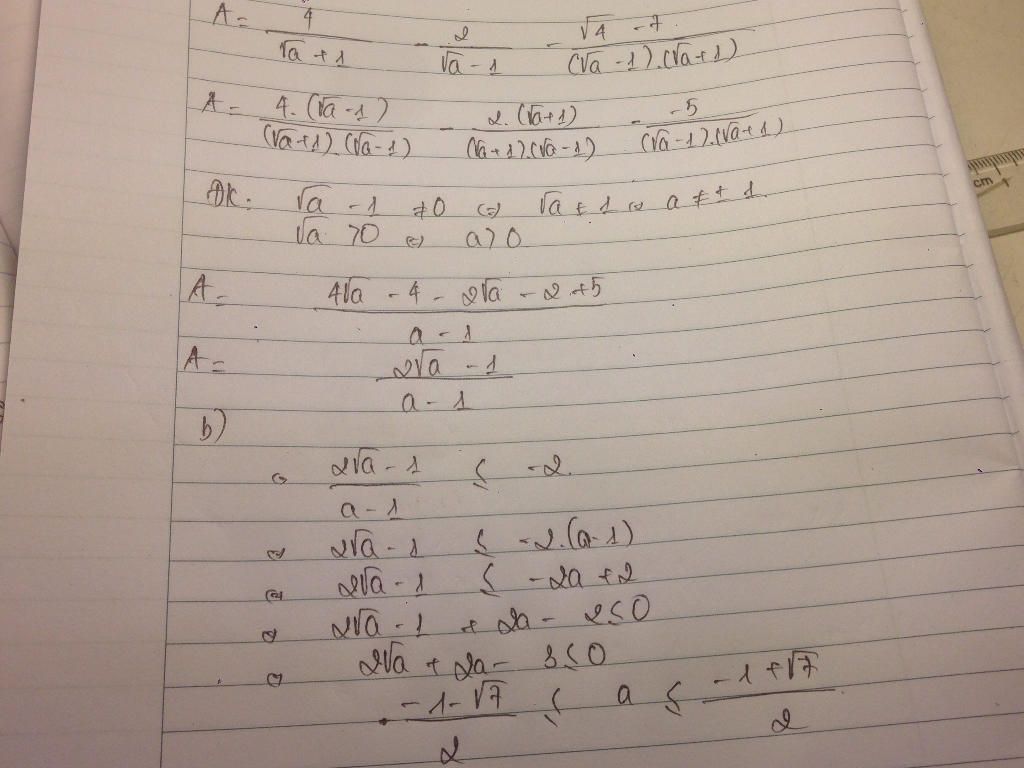 A = 4/(√a + 1) - 2/(√a - 1) - (√4 - 7)/((√a - 1).(√a + 1))
A = 4.(√a - 1)/((√a + 1).(√a - 1)) - 2.(√a + 1)/((√a + 1).(√a - 1)) - -5/((√a - 1).(√a + 1))
ĐK: √a - 1 ≠ 0 (=) √a ≠ 1 (=) a ≠ ± 1
√a > 0 (=) a > 0
A = (4√a - 4 - 2√a - 2 + 5)/(a - 1)
A = (2√a - 1)/(a - 1)
b)
(=) (2√a - 1)/(a - 1) ≤ -2.
(=) 2√a - 1 ≤ -2.(a - 1)
(=) 2√a - 1 ≤ -2a + 2
(=) 2√a - 1 + 2a - 2 ≤ 0
(=) 2√a + 2a - 3 ≤ 0
(-1 - √7)/2 ≤ a ≤ (-1 + √7)/2
cm 1